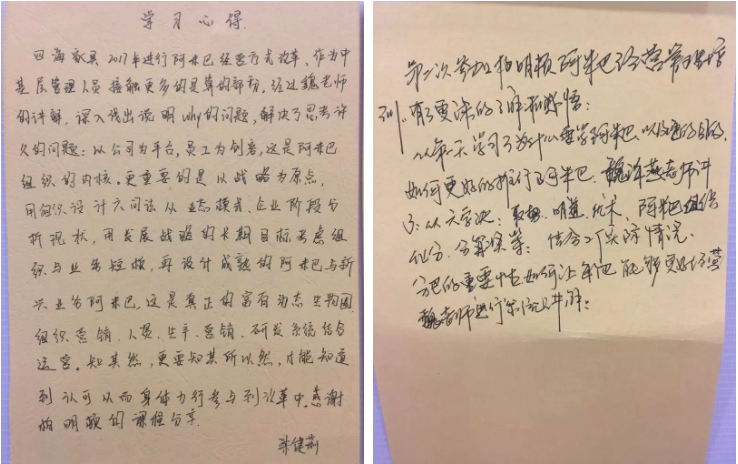 学习心得
四海家具2017年进行阿米巴经营方式改革,作为中
基层管理人员接触更多的是算的部份,经过魏老师
的讲解,深入浅出说明why的问题,解决了思考许
久的问题:以公司为平台,员工为创客,这是阿米巴
组织的内核。更重要的是以战略为原点,
用组织设计六问法从业态模式、企业阶段分
析现状,用发展战略的长期目标考虑组
织与业务短板,再设计成熟的阿米巴与新
兴业务阿米巴,这是真正的富有动态生物圈
组织营销、人贸、生产、营销、研发系统结合
运营。知其然,更要知其所以然,才能知道
到认可从而身体力行参与到改革中。感谢
柏明顿的课程分享
张健
第二次参加柏明顿阿米巴经营
训,有了更深的了解和感悟:
从第一天学习了为什么要学阿米巴,以及它的目的,
如何更好的推行阿米巴,魏
了:从六字决:取势、明道、优术、阿米巴组织
划分、分算奖等:结合工厂实际情况
分巴的重要性,如何让阿米巴能够更好经营
魏老师进行